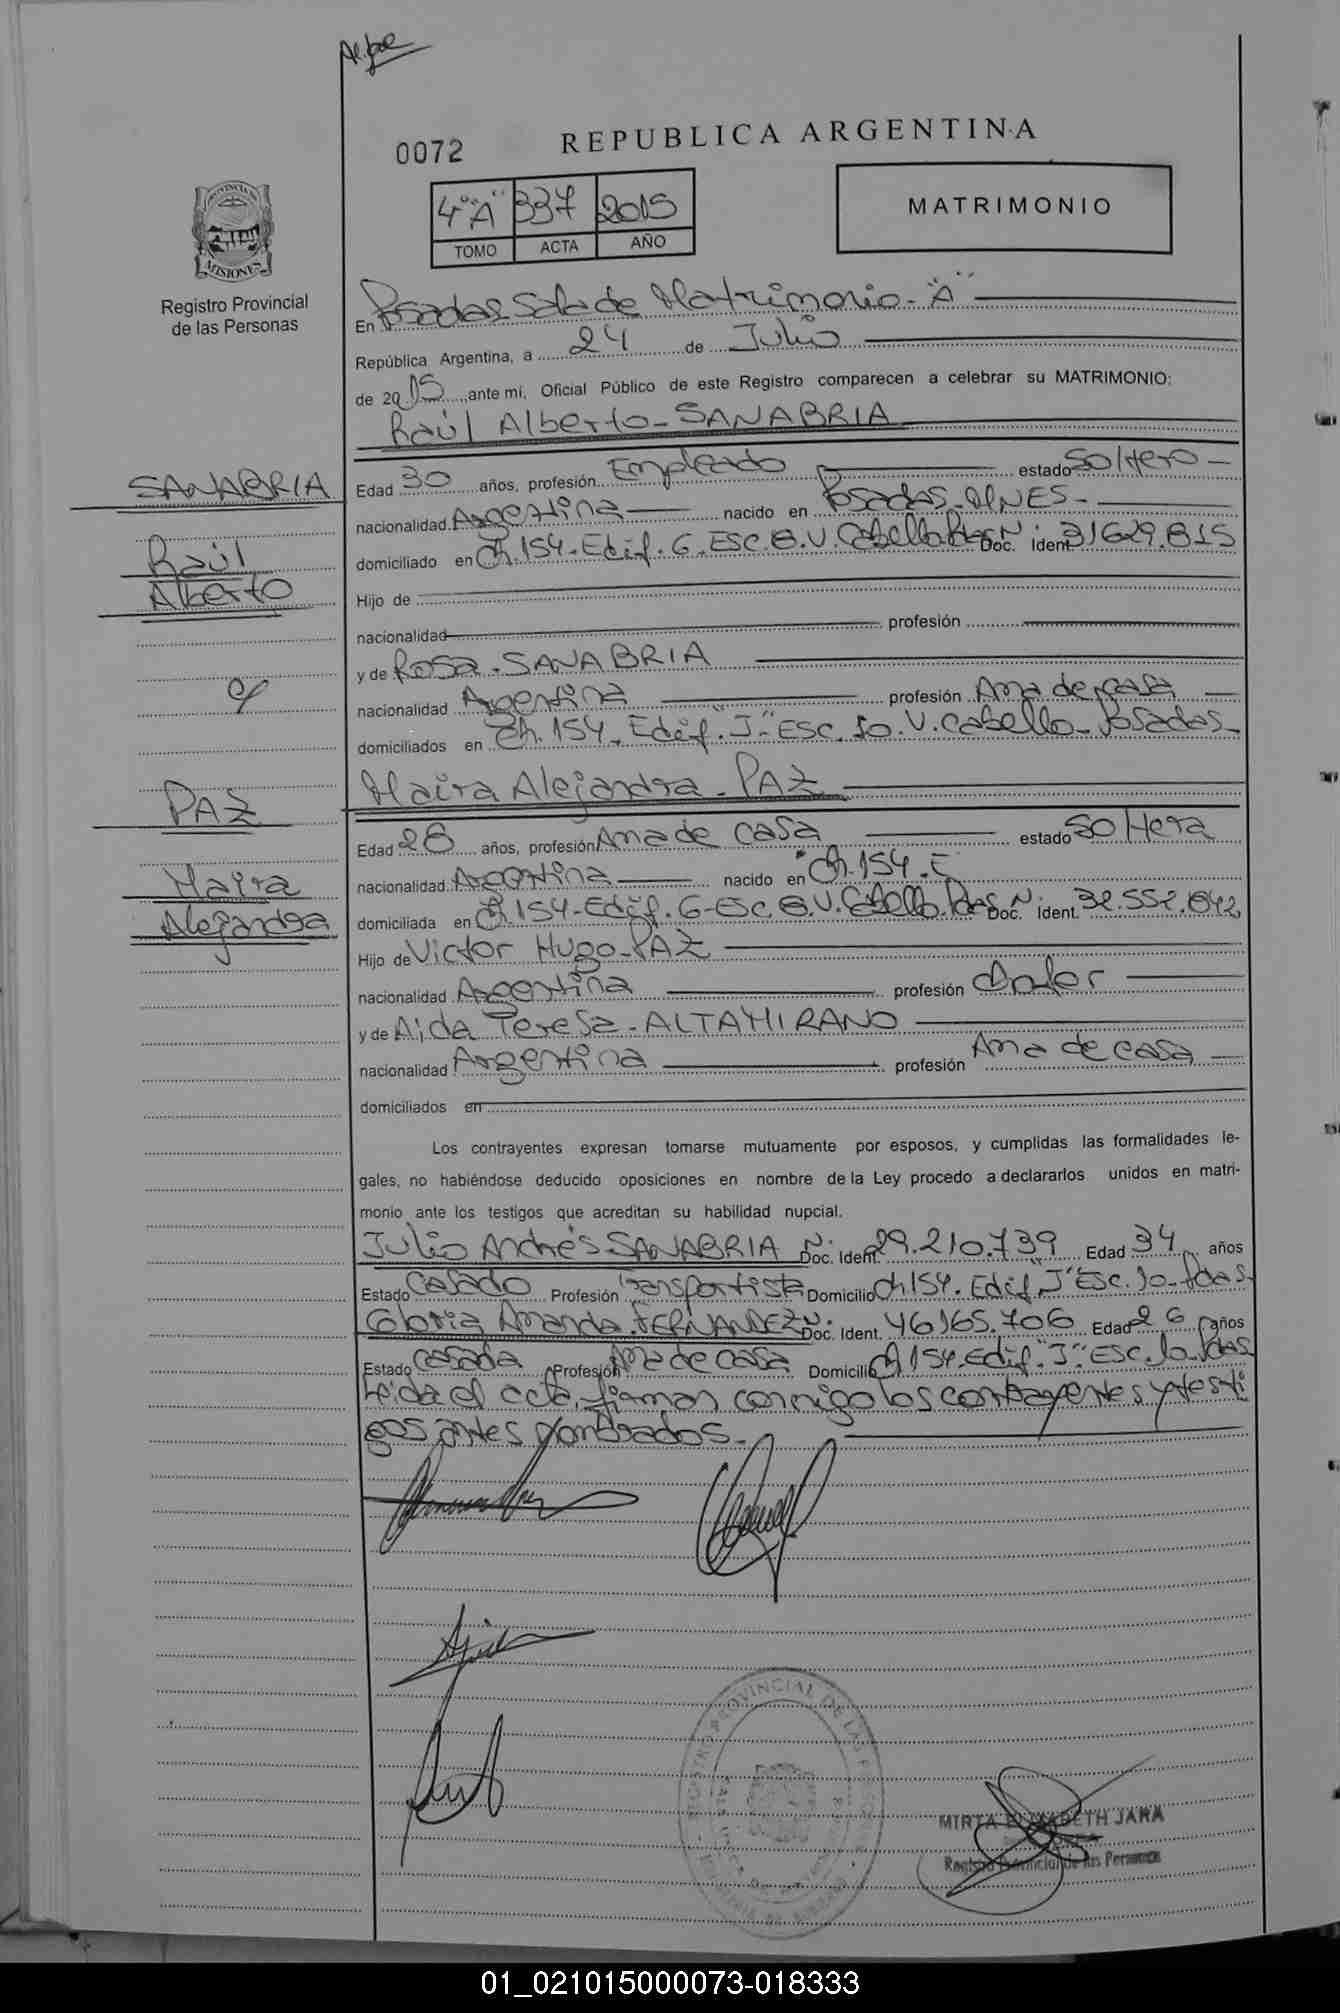 0072 REPUBLICA ARGENTINA
PROVINCIA DE MISIONES
4º "A" 337 2015
TOMO ACTA AÑO
MATRIMONIO
Registro Provincial
de las Personas
En Posadas Sala de Matrimonio - "A"
República Argentina, a 24 de Julio
de 2015 ante mi, Oficial Público de este Registro comparecen a celebrar su MATRIMONIO:
Raúl Alberto - SANABRIA
SANABRIA
Edad 30 años, profesión Empleado estado Soltero -
nacionalidad Argentina nacido en Posadas - MNES -
Raúl
domiciliado en Ch. 154 - Edif. 6 - ESC. 8. V. Cabello Pdas Nº Doc. Ident. 31629.815
Alberto
Hijo de
nacionalidad profesión
y de Rosa - SANABRIA
c/
nacionalidad Argentina profesión Ama de casa
domiciliados en Ch. 154. Edif. "J" - ESC. 10. V. Cabello - Posadas -
PAZ
Maira Alejandra - PAZ
Edad 28 años, profesión Ama de casa estado Soltera
Maira
nacionalidad Argentina nacido en Ch. 154 - E
Alejandra
domiciliada en Ch. 154 - Edif. 6 - Esc. 8. V. Cabello. Pdas Nº Doc. Ident. 32.552.842
Hijo de Victor Hugo - PAZ
nacionalidad Argentina profesión Chofer
y de Aida Teresa - ALTAMIRANO
nacionalidad Argentina profesión Ama de casa
domiciliados en
Los contrayentes expresan tomarse mutuamente por esposos, y cumplidas las formalidades le-
gales, no habiéndose deducido oposiciones en nombre de la Ley procedo a declararlos unidos en matri-
monio ante los testigos que acreditan su habilidad nupcial.
Julio Andrés SANABRIA Nº Doc. Ident. 29.210.739 Edad 34 años
Estado Casado Profesión Transportista Domicilio Ch 154. Edif. "J" Esc. 10 - Pdas -
Gloria Amanda FERNANDEZ Nº Doc. Ident. 46165.706 Edad 26 años
Estado Casada Profesión Ama de casa Domicilio Ch 154. Edif. "J" ESC. 10. Pdas
Leida el acta, firman conmigo los contrayentes y testi
gos antes nombrados -
REGISTRO PROVINCIAL DE LAS
MIRTA ELIZABETH JARA
Registro Provincial de las Personas
01_021015000073-018333